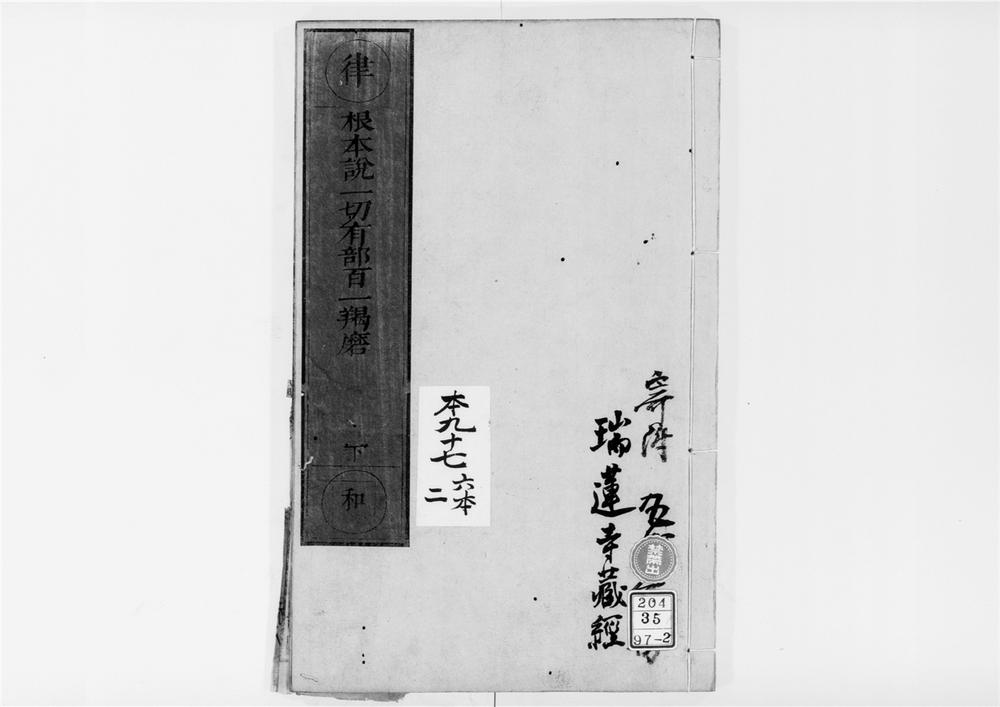 律
根本說一切有部百一羯磨
下
和
本九十七
六本
二
瑞蓮寺藏經
禁帶出
204
35
97-2